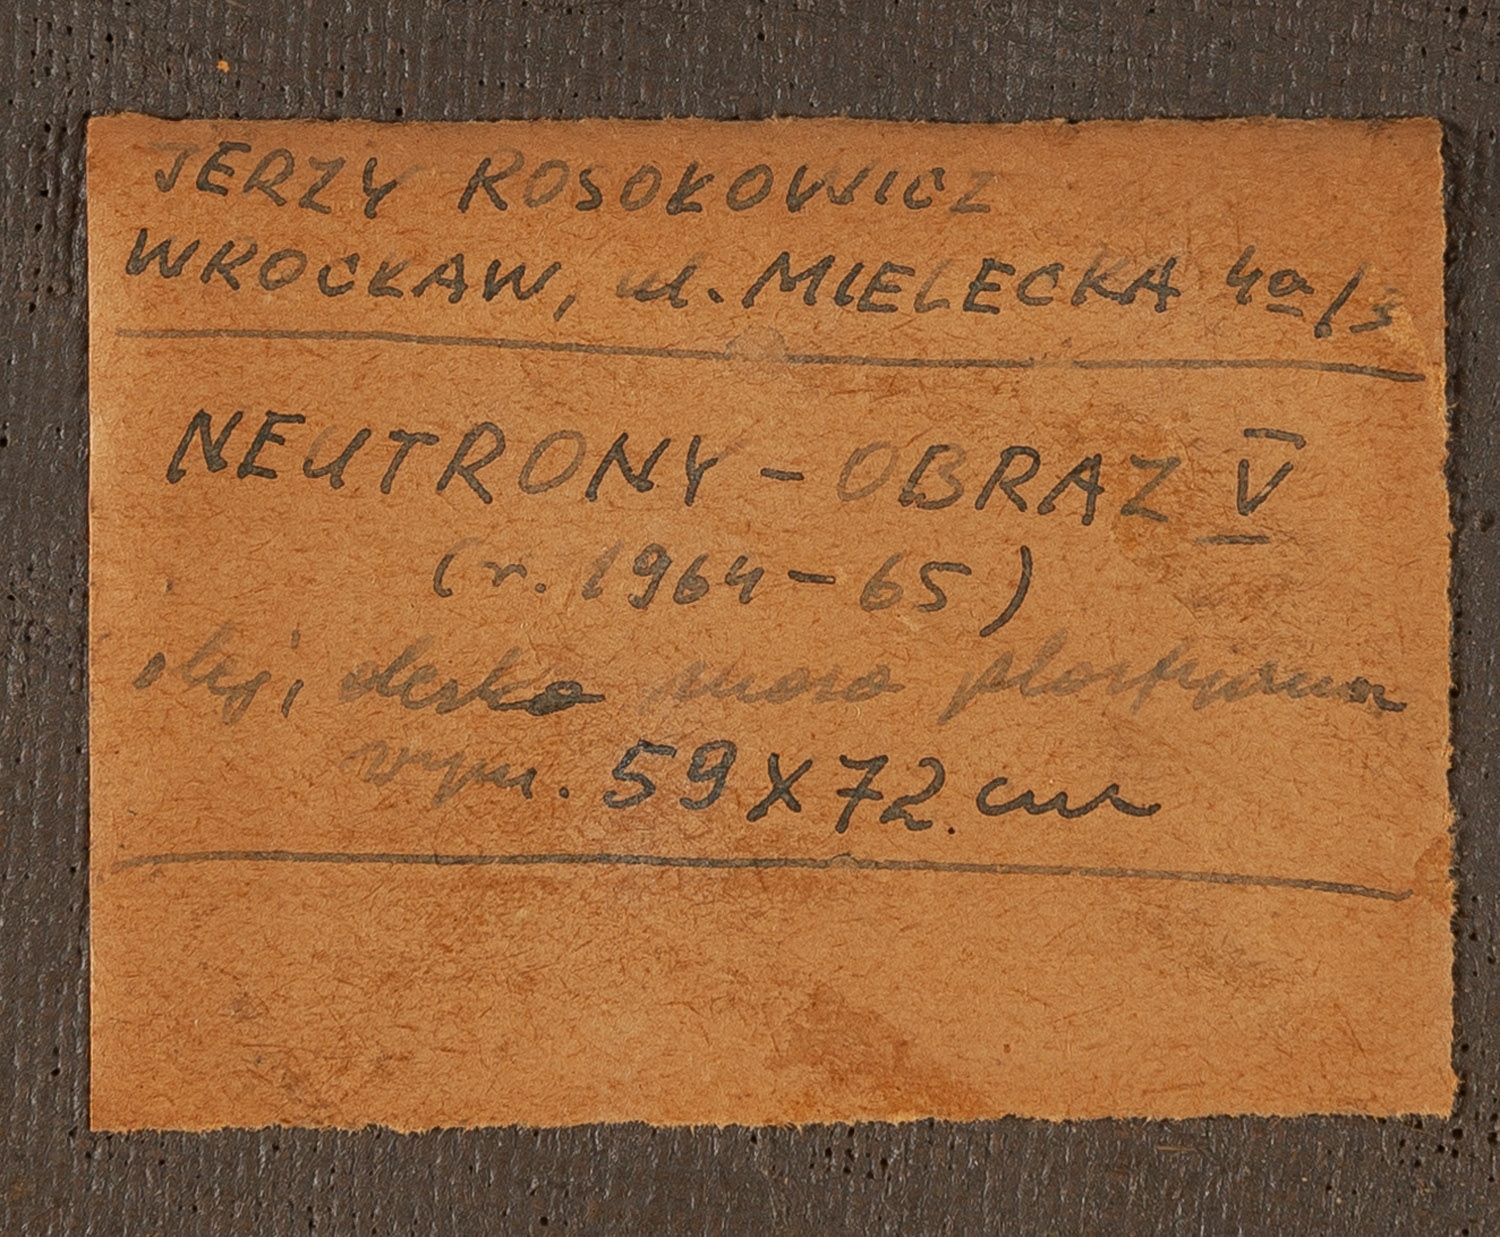 JERZY ROSOŁOWICZ
WROCŁAW, ul. MIELECKA 4a/3
NEUTRONY - OBRAZ V
(r. 1964 - 65)
olej, deska masa plastyczna
wym. 59 x 72 cm